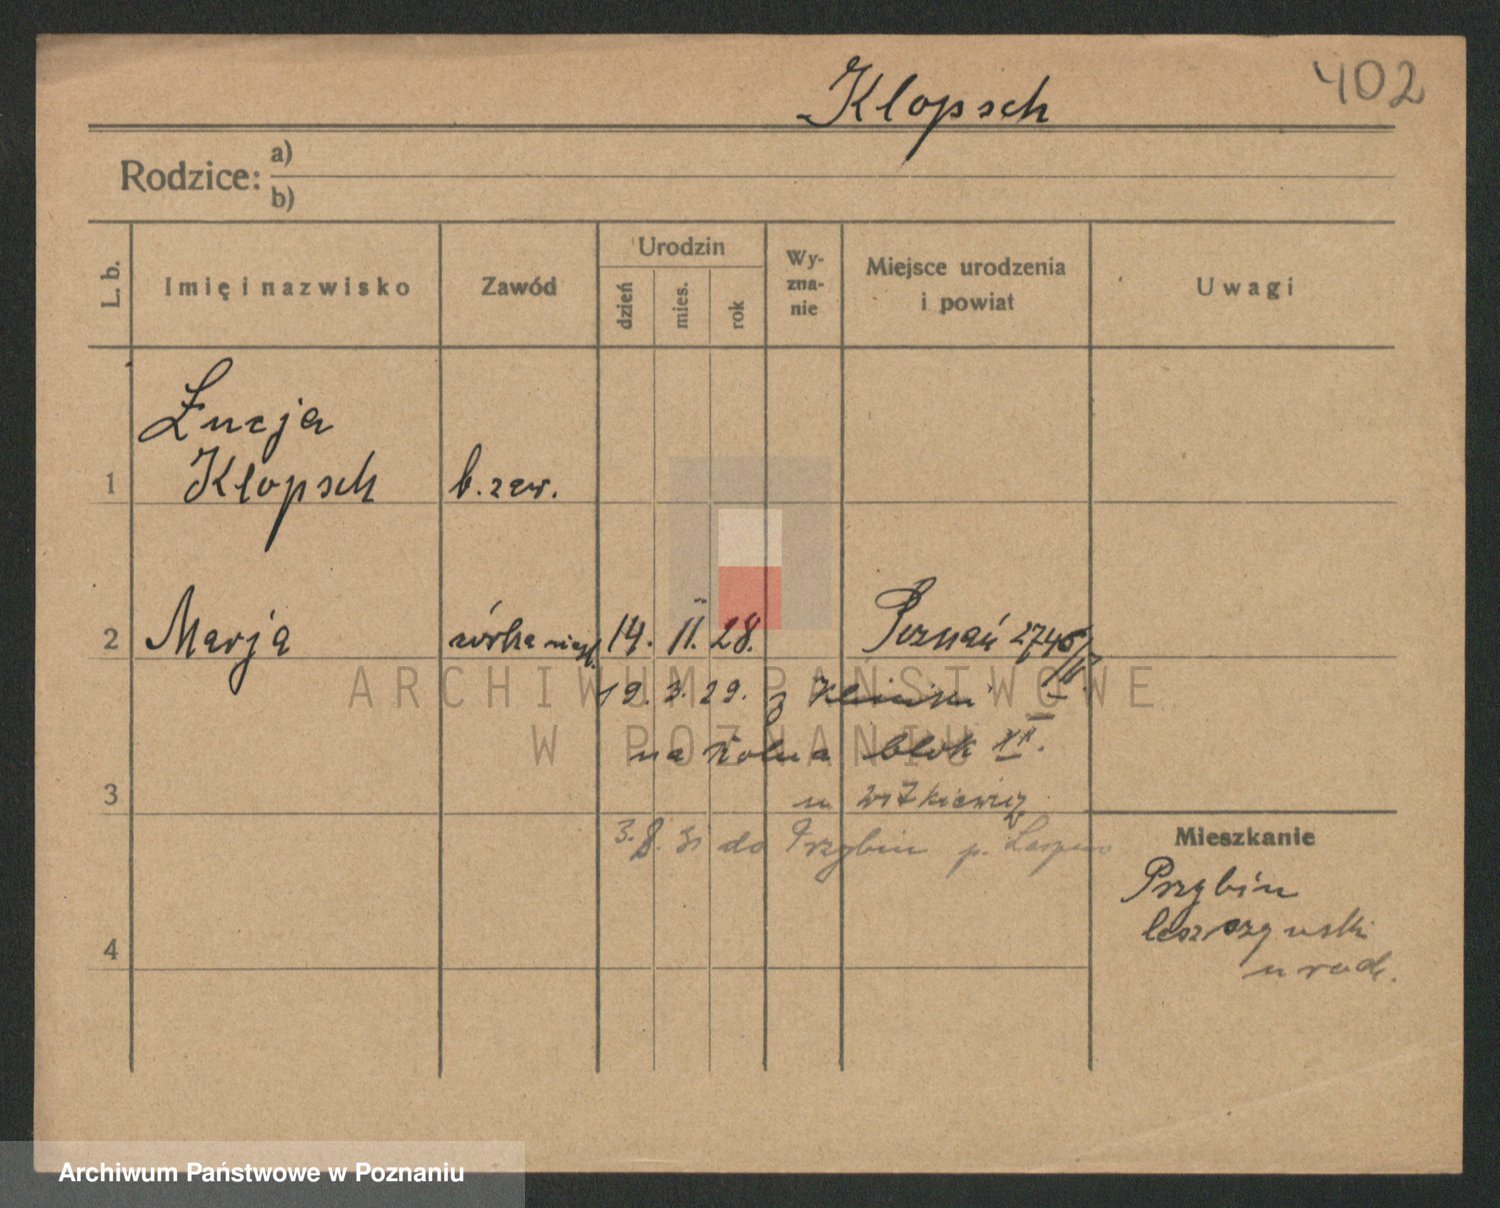 Klopsch
402
Rodzice: a)
b)
L. b.
Imię i nazwisko
Zawód
Urodzin
dzień
mies.
rok
Wy-
zna-
nie
Miejsce urodzenia
i powiat
Uwagi
Łucja
1 Klopsch b. zaw.
2 Marja córka 14. II. 28. Poznań 2746/
19. 3. 29. z Kliniki
na blok
3
Mieszkanie
3. 8. 31 do Przybin p.
Przybin
4
u rodz.
ARCHIWUM PAŃSTWOWE
W POZNANIU
Archiwum Państwowe w Poznaniu